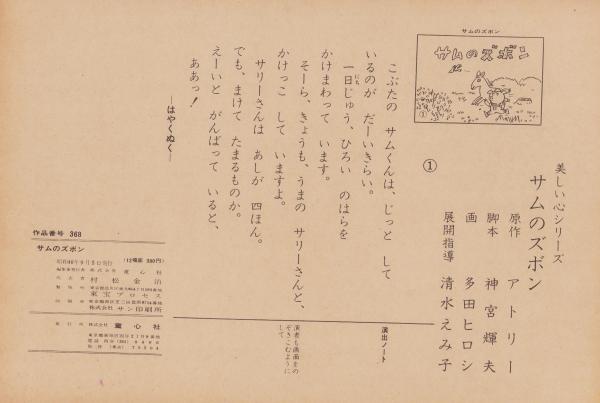 美しい心シリーズ
サムのズボン
原作 アトリー
脚本 神宮輝夫
画 多田ヒロシ
展開指導 清水えみ子
サムのズボン
サムのズボン
①
①
こぶたの サムくんは、じっと して
いるのが だーいきらい。
一日じゅう、ひろい のはらを
にち
かけまわって います。
そーら、きょうも、うまの サリーさんと、
かけっこ して いますよ。
サリーさんは あしが 四ほん。
でも、まけて たまるものか。
えーいと がんばって いると、
ああっ!
―はやくぬく―
演出ノート
演者も画面をの
ぞきこむように
して
作品番号 368
サムのズボン
(12場面
童心社
村松金治
東宝プロセス
株式会社 サン印刷所
発行所 株式会社 童心社